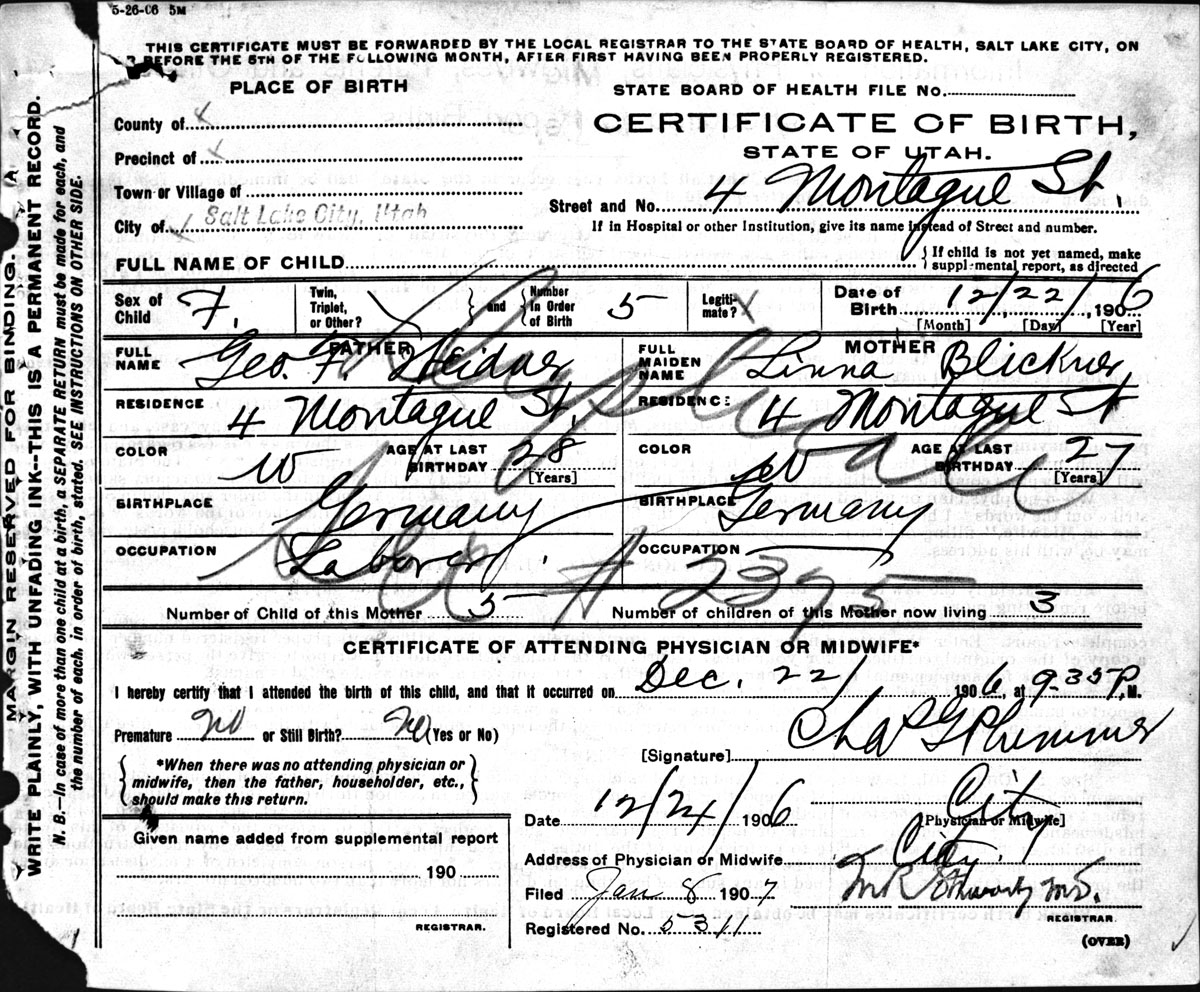 5-26-06 5M
THIS CERTIFICATE MUST BE FORWARDED BY THE LOCAL REGISTRAR TO THE STATE BOARD OF HEALTH, SALT LAKE CITY, ON
BEFORE THE 5TH OF THE FOLLOWING MONTH, AFTER FIRST HAVING BEEN PROPERLY REGISTERED.
PLACE OF BIRTH
STATE BOARD OF HEALTH FILE No.
County of
CERTIFICATE OF BIRTH,
Precinct of
STATE OF UTAH.
Town or Village of
Street and No. 4 Montague St.
City of Salt Lake City, Utah
If in Hospital or other Institution, give its name instead of Street and number.
FULL NAME OF CHILD
If child is not yet named, make
supplemental report, as directed
Sex of Child F.
Twin, Triplet, or Other?
and
Number in Order of Birth 5
Legiti-mate? X
Date of Birth 12/22/1906
[Month] [Day] [Year]
FATHER
MOTHER
FULL NAME Geo. F. Heidner
FULL MAIDEN NAME Linna Blickner
RESIDENCE 4 Montague St.
RESIDENCE 4 Montague St
COLOR W AGE AT LAST BIRTHDAY 28 [Years]
COLOR W AGE AT LAST BIRTHDAY 27 [Years]
BIRTHPLACE Germany
BIRTHPLACE Germany
OCCUPATION Laborer
OCCUPATION
# 2395
Number of Child of this Mother 5
Number of children of this Mother now living 3
CERTIFICATE OF ATTENDING PHYSICIAN OR MIDWIFE*
I hereby certify that I attended the birth of this child, and that it occurred on Dec. 22 1906, at 9-35 P.M.
Premature No or Still Birth? No (Yes or No)
[Signature] Chas G Plummer
*When there was no attending physician or
midwife, then the father, householder, etc.,
should make this return.
Date 12/24/1906
City
[Physician or Midwife]
Given name added from supplemental report
190
REGISTRAR.
Address of Physician or Midwife City.
Filed Jan 8 1907
M R Stewart M.D.
REGISTRAR.
Registered No. 5311
(OVER)
MARGIN RESERVED FOR BINDING.
WRITE PLAINLY, WITH UNFADING INK--THIS IS A PERMANENT RECORD.
N. B.—In case of more than one child at a birth, a SEPARATE RETURN must be made for each, and
the number of each, in order of birth, stated. SEE INSTRUCTIONS ON OTHER SIDE.